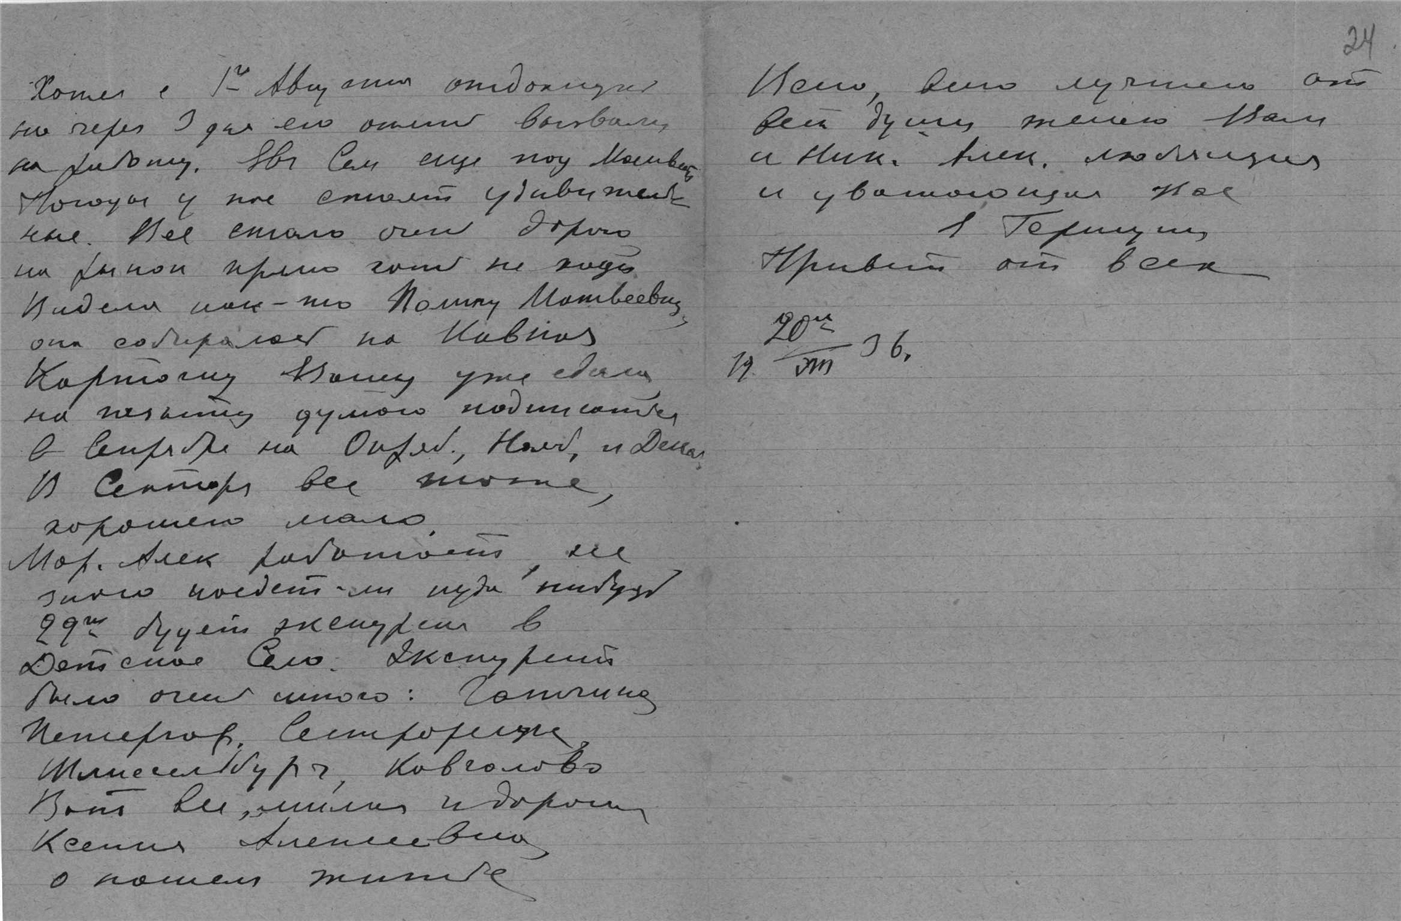 Хотел с 1го Августа отдохнуть
но через 3 дня его опять вызвали
на работу. Сам еще под
Погоды у нас стоят удивитель-
ные. Все стало очень дорого
на рынок прямо хоть не ходи
Видела как-то Полину Матвеевну,
она собиралась на Кавказ
Карточку Вашу уже сдала
на думаю подписаться
в Сентябре на Октяб., Нояб, и Декаб,
В Секторе все тоже,
хорошего мало.
Мар. Алек работает, не
знаю поедет-ли куда нибудь
29го будет экскурсия в
Детское Село. Экскурсий
было очень много: Гатчина,
Петергоф, Сестрорецк,
Шлиссельбург, Кавголово
Вот все, милая и дорогая
Ксения Алексеевна,
о нашем житье
24.
Всего, всего лучшего от
всей души желаю Вам
и Ник. Алек. любящая
и уважающая Вас
Привет от всех
19 20го/VIII 36.